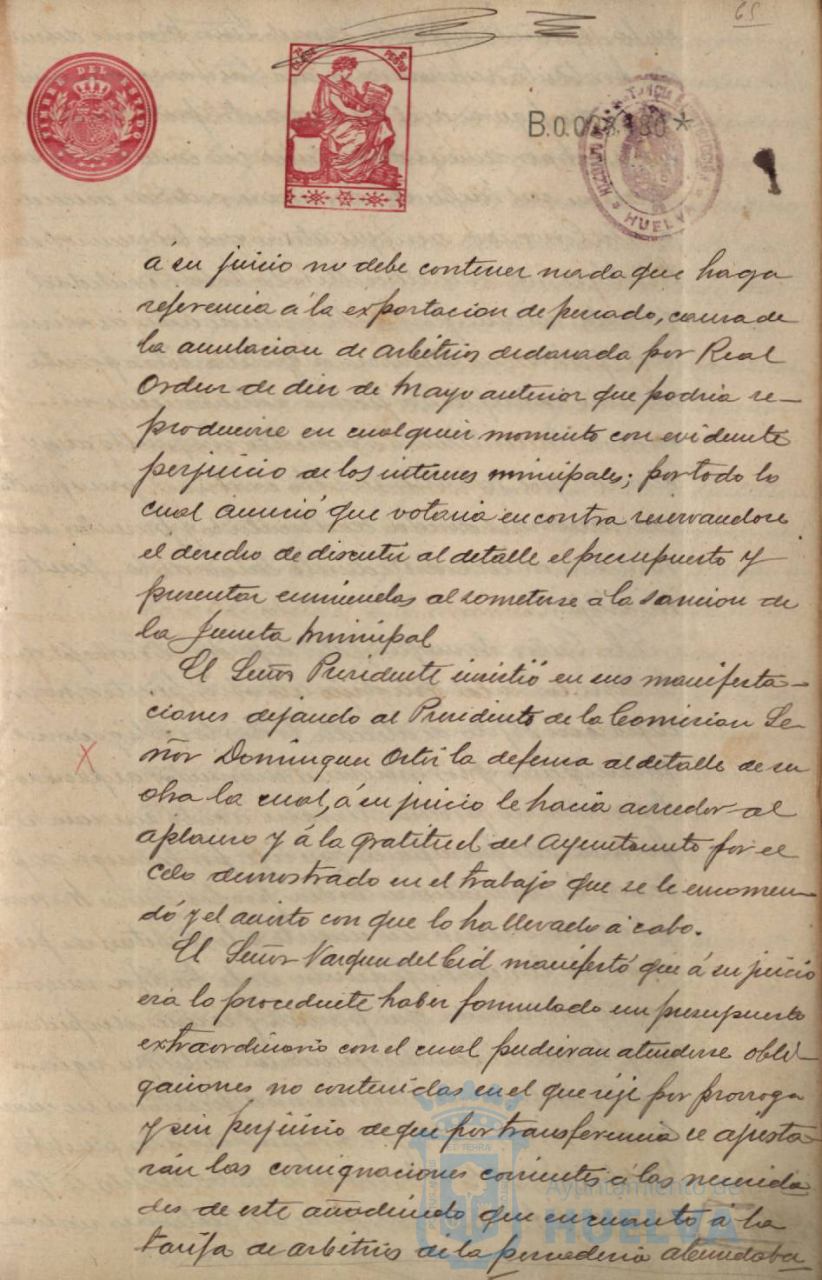 65
TIMBRE DEL ESTADO
CLASE
PESETA
B.0.008.180*
HUELVA
á su juicio no debe contener nada que haga
referencia á la exportacion de pescado, causa de
la anulacion de arbitrios declarada por Real
Orden de diez de Mayo anterior que podria re-
producirse en cualquier momento con evidente
perjuicio de los intereses municipales; por todo lo
cual anunció que votaria en contra reservandose
el derecho de discutir al detalle el presupuesto y
presentar enmiendas al someterse á la sancion de
la Junta Municipal
El Señor Presidente insistió en sus manifesta-
ciones dejando al Presidente de la Comision Se-
ñor Dominguez Ortiz la defensa al detalle de su
obra la cual, á su juicio le hacia acreedor al
aplauso y á la gratitud del Ayuntamiento por el
celo demostrado en el trabajo que se le encomen-
dó y el acierto con que lo ha llevado á cabo.
El Señor Vazquez del Cid manifestó que á su juicio
era lo procedente haber formulado un presupuesto
extraordinario con el cual pudieran atenderse obli-
gaciones no contenidas en el que rije por prorroga
y sin perjuicio de que por transferencia se ajusta
rán las consignaciones corrientes á las necesida
des de este añadiendo que en cuanto á la
tarifa de arbitrios de la pescaderia
Ayuntamiento de
HUELVA